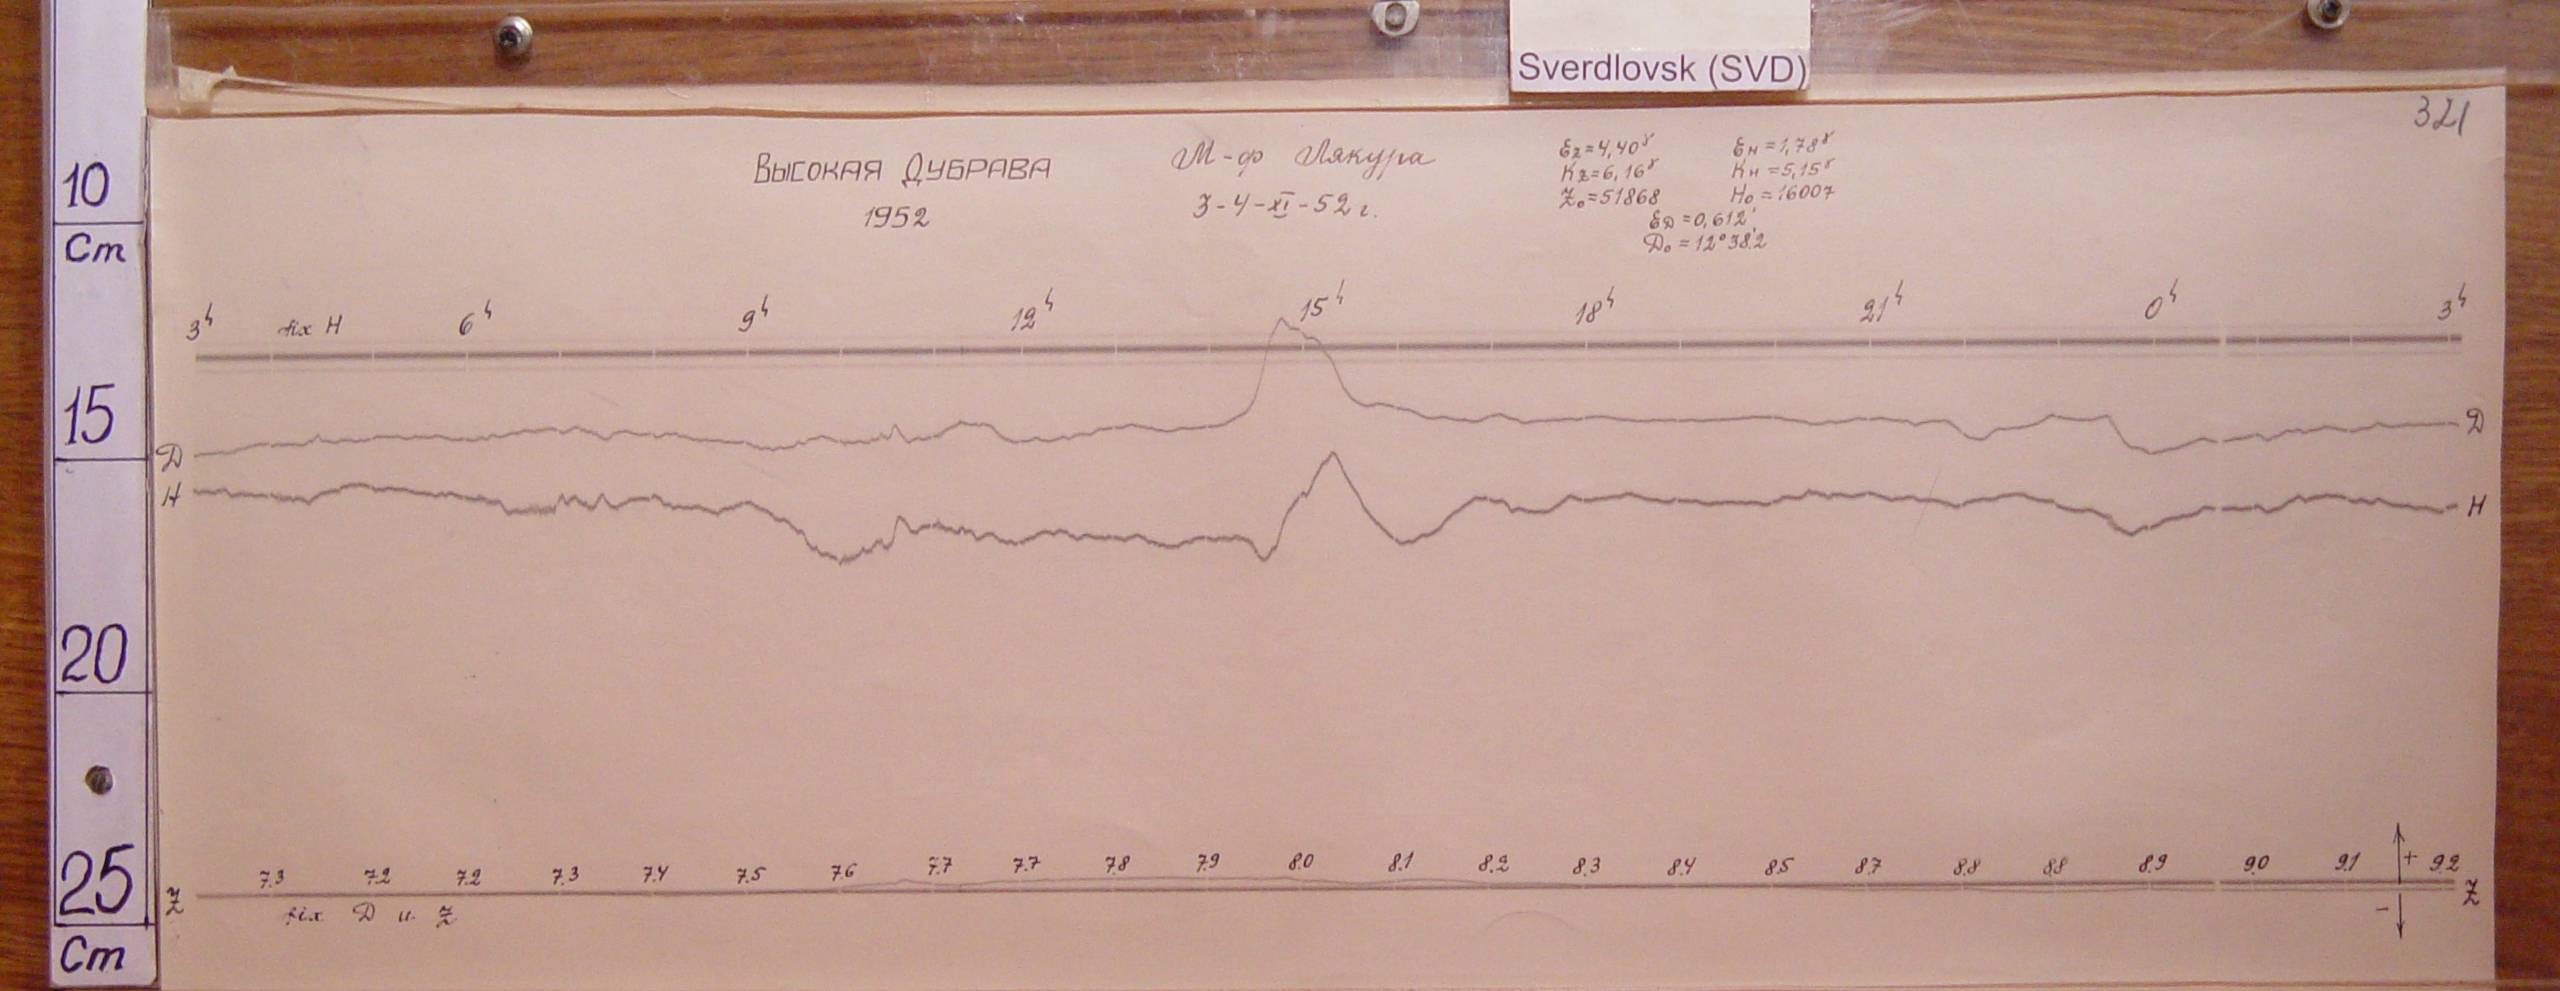 Sverdlovsk (SVD)
321
10
Cm
15
20
25
Cm
ВЫСОКАЯ ДУБРАВА
1952
М-ф Лякура
3-4-XI-52 г.
Ez=4,40γ Eн=1,78γ
Kz=6,16γ Kн=5,15γ
Z₀=51868 H₀=16007
E_D=0,612'
D₀=12°38.2'
3h fix H 6h 9h 12h 15h 18h 21h 0h 3h
D D
H H
7.3 7.2 7.2 7.3 7.4 7.5 7.6 7.7 7.7 7.8 7.9 8.0 8.1 8.2 8.3 8.4 8.5 8.7 8.8 8.8 8.9 9.0 9.1 + 9.2
Z Z
fix D и Z −